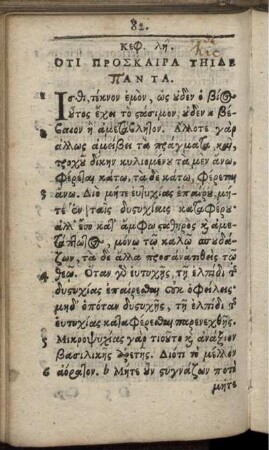 82.
Κεφ. λη.
ΟΤΙ ΠΡΟΣΚΑΙΡΑ ΤΗΙΔΕ
ΠΑΝΤΑ.
Ισθι, τέκνον ἐμὸν, ὡς οὐδὲν ὁ βίος
οὗτος ἔχει τὸ στάσιμον, οὐδὲν ἢ βέ-
βαιον ἢ ἀμετάβλητον. Αλλοτε γὰρ
ἄλλως ἀμείβει τὰ πράγματα, καὶ
τροχοῦ δίκην κυλιομένου τὰ μὲν ἄνω,
φέρεται κάτω, τὰ δὲ κάτω, φέρεται
ἄνω. Διὸ μήτε εὐτυχίαις ἐπαίρου, μή-
τε ἐν ταῖς δυστυχίαις καταφέρου·
ἀλλ' ἔσο κατ' ἄμφω σταθηρὸς καὶ ἀμε-
τάπτωτος, μόνῳ τῷ καλῷ σπουδά-
ζων, τὰ δὲ ἄλλα προσανατιθεὶς τῷ
θεῷ. Οταν γὰρ εὐτυχῇς, τῇ ἐλπίδι τῆς
δυστυχίας ἐπαίρεσθαι οὐκ ὀφείλεις·
μηδ' ὁπόταν δυστυχῇς, τῇ ἐλπίδι τῆς
εὐτυχίας καταφέρεσθαι παρενεχθῇς.
Μικροψυχίας γὰρ τὸ τοιοῦτο καὶ ἀνάξιον
βασιλικῆς ἀρετῆς. Διότι τὸ μέλλον
ἀόρατον. b Μήτε οὖν στυγνάζων ποτὲ
μήτε